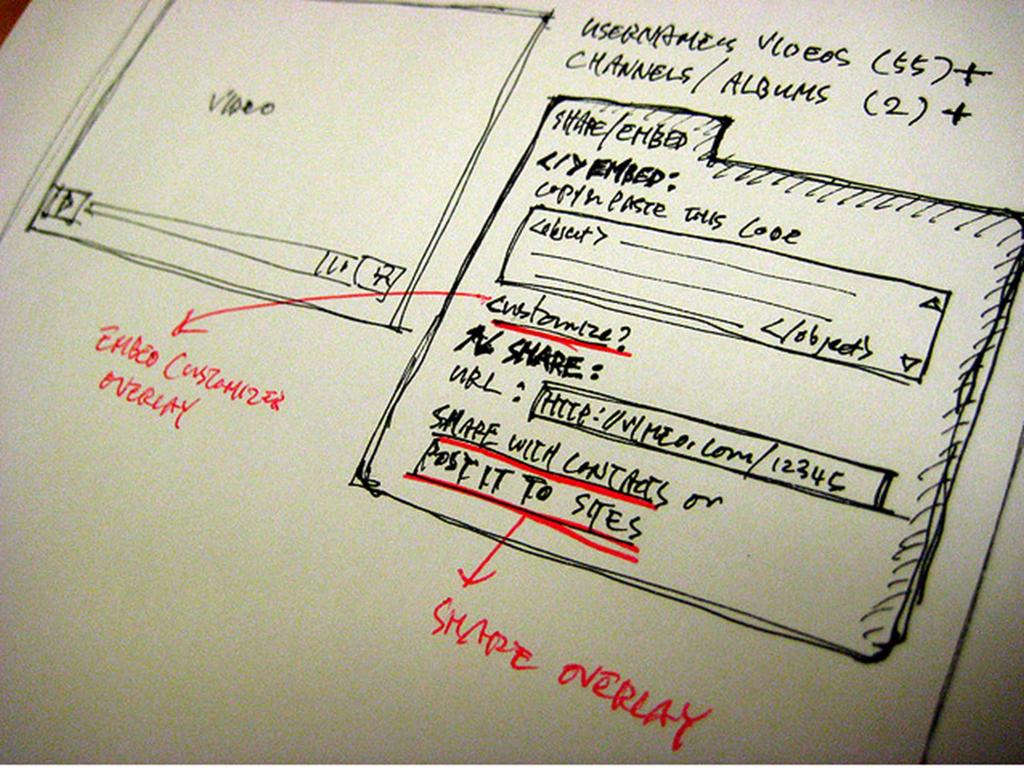 VIDEO
USERNAME'S VIDEOS (55)+
CHANNELS/ALBUMS (2)+
SHARE/EMBED
</> EMBED:
COPY N PASTE THIS CODE
<object>
</object>
Customize?
SHARE:
URL: HTTP://VIMEO.COM/12345
SHARE WITH CONTACTS or
POST IT TO SITES
EMBED CUSTOMIZER
OVERLAY
SHARE OVERLAY